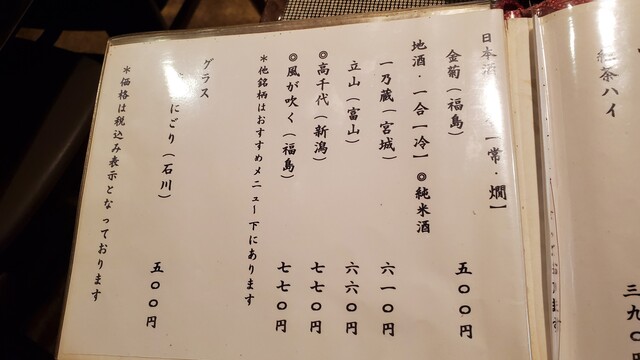 日本酒 【常・燗】
金菊（福島） 五〇〇円
地酒・一合【冷】 ◎純米酒
一乃蔵（宮城） 六一〇円
立山（富山） 六六〇円
◎高千代（新潟） 七七〇円
◎風が吹く（福島） 七七〇円
＊他銘柄はおすすめメニュー下にあります
グラス
にごり（石川） 五〇〇円
＊価格は税込み表示となっております
紅茶ハイ
三九〇円